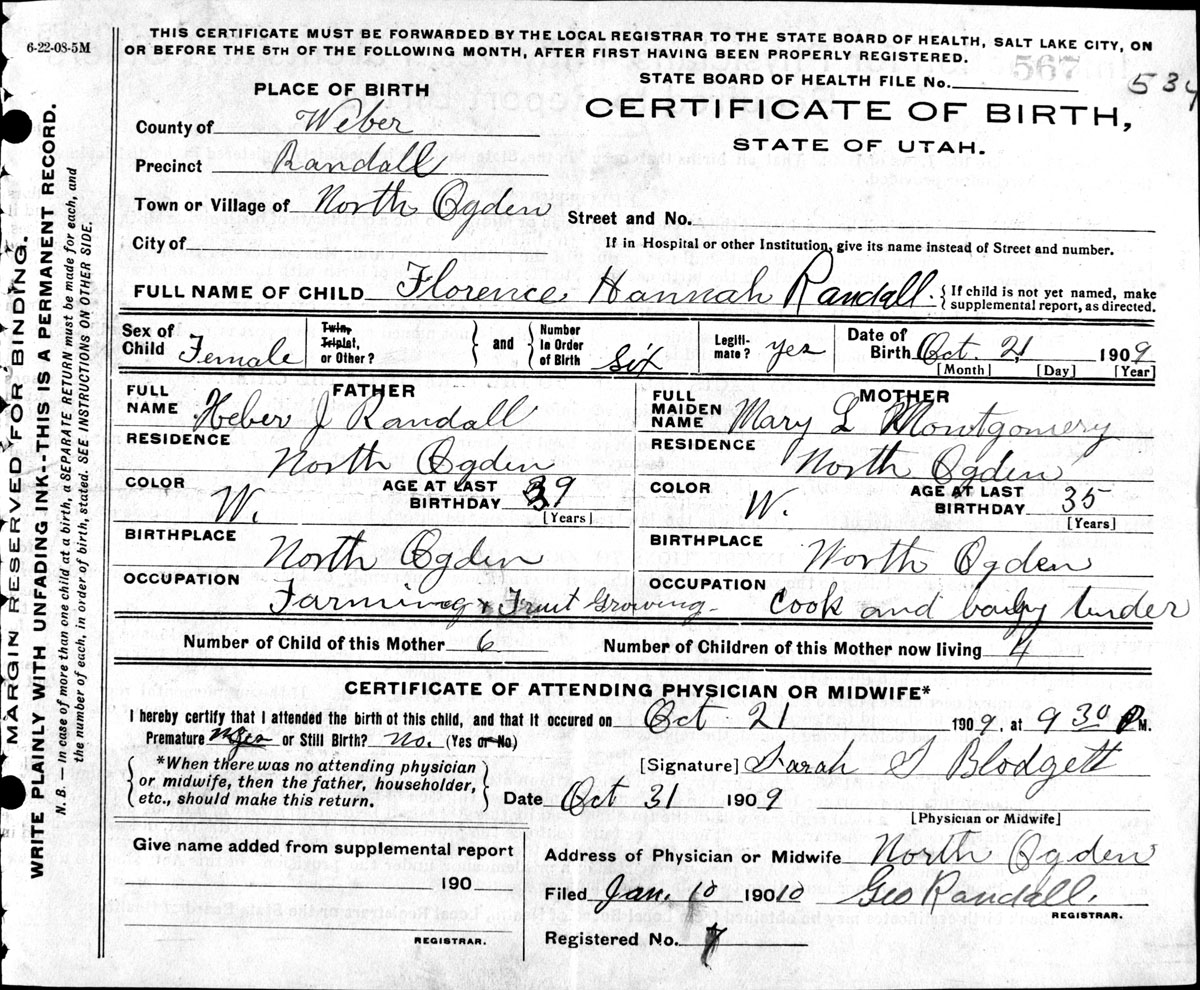 6-22-08-5M
THIS CERTIFICATE MUST BE FORWARDED BY THE LOCAL REGISTRAR TO THE STATE BOARD OF HEALTH, SALT LAKE CITY, ON
OR BEFORE THE 5TH OF THE FOLLOWING MONTH, AFTER FIRST HAVING BEEN PROPERLY REGISTERED.
567
STATE BOARD OF HEALTH FILE No. 534
PLACE OF BIRTH
CERTIFICATE OF BIRTH,
STATE OF UTAH.
County of Weber
Precinct Randall
Town or Village of North Ogden
Street and No.
City of
If in Hospital or other Institution, give its name instead of Street and number.
FULL NAME OF CHILD Florence Hannah Randall. {If child is not yet named, make
supplemental report, as directed.
Sex of Child Female
Twin, Triplet, or Other?
} and {
Number In Order of Birth Six
Legitimate? yes
Date of Birth Oct. 21 1909
[Month] [Day] [Year]
FATHER
FULL NAME Heber J Randall
RESIDENCE
North Ogden
COLOR W.
AGE AT LAST BIRTHDAY 39
[Years]
BIRTHPLACE
North Ogden
OCCUPATION
Farming & Fruit Growing.
MOTHER
FULL MAIDEN NAME Mary L Montgomery
RESIDENCE
North Ogden
COLOR W.
AGE AT LAST BIRTHDAY 35
[Years]
BIRTHPLACE
North Ogden
OCCUPATION
Cook and tinder
Number of Child of this Mother 6
Number of Children of this Mother now living 4
CERTIFICATE OF ATTENDING PHYSICIAN OR MIDWIFE*
I hereby certify that I attended the birth of this child, and that it occured on Oct. 21 1909, at 9 30 P M.
Premature yes or Still Birth? no. (Yes or No)
{*When there was no attending physician
or midwife, then the father, householder,
etc., should make this return.}
[Signature] Sarah S Blodgett
Date Oct 31 1909
[Physician or Midwife]
Give name added from supplemental report
190
REGISTRAR.
Address of Physician or Midwife North Ogden
Filed Jan. 10 19010 Geo Randall.
REGISTRAR.
Registered No. 7
MARGIN RESERVED FOR BINDING.
WRITE PLAINLY WITH UNFADING INK--THIS IS A PERMANENT RECORD.
N. B. — In case of more than one child at a birth, a SEPARATE RETURN must be made for each, and
the number of each, in order of birth, stated. SEE INSTRUCTIONS ON OTHER SIDE.